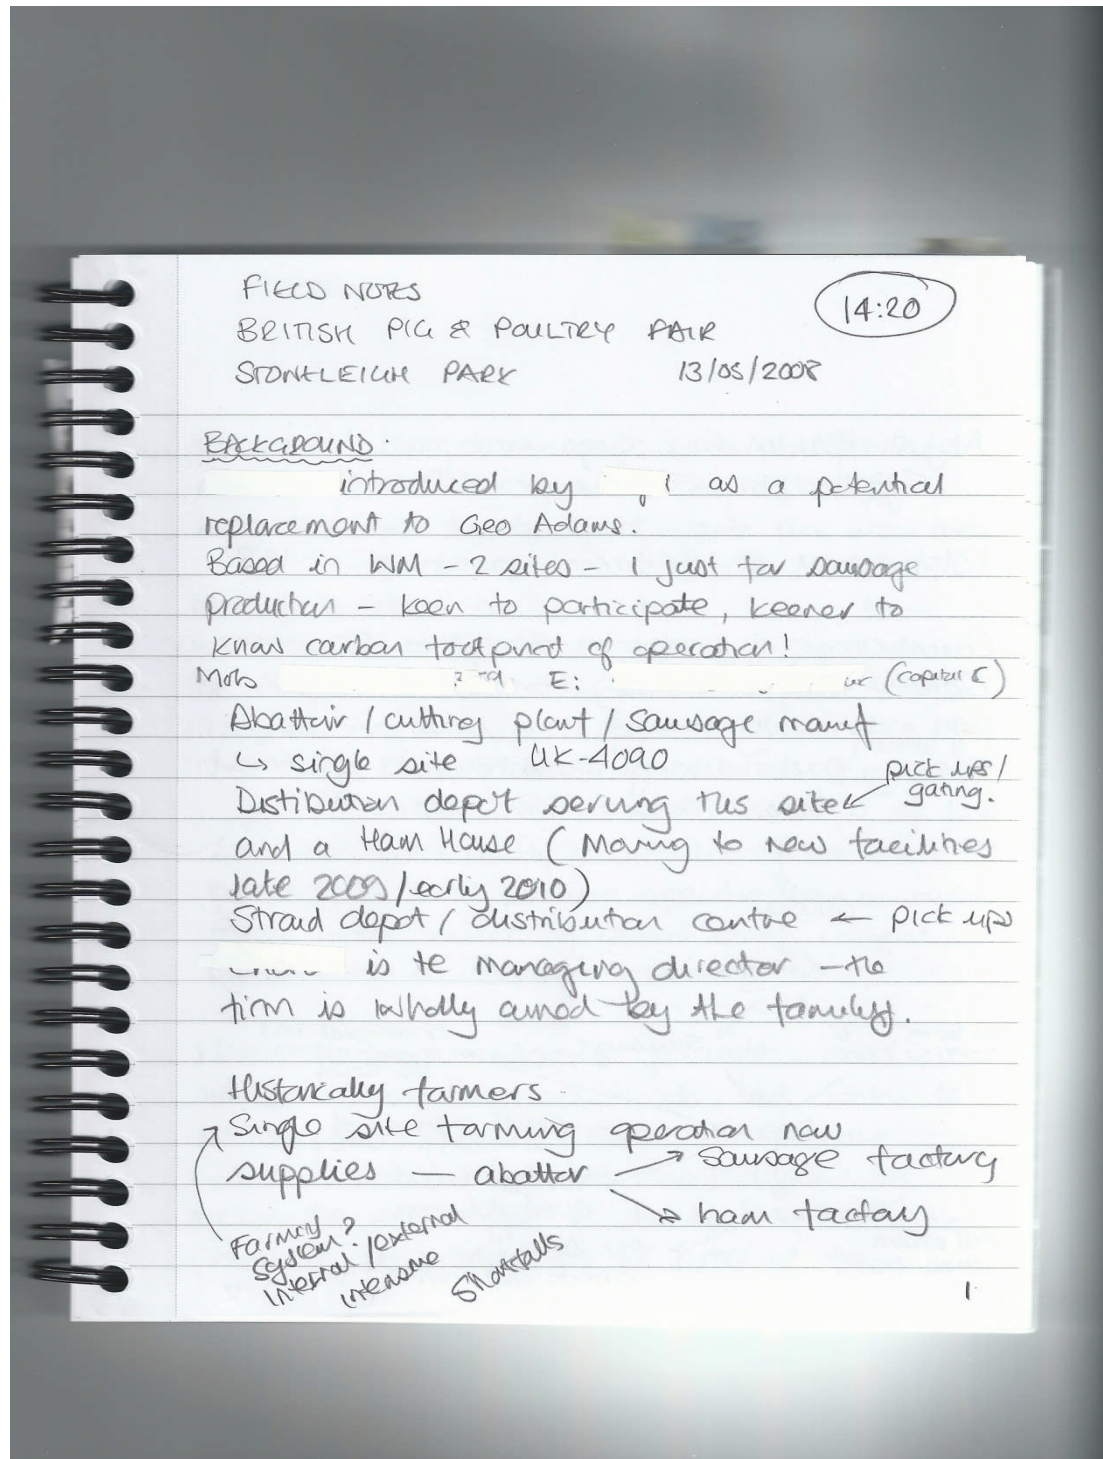 FIELD NOTES
14:20
BRITISH PIG & POULTRY FAIR
STONELEIGH PARK 13/05/2008
BACKGROUND.
introduced by as a potential
replacement to Geo Adams.
Based in WM - 2 sites - 1 just for sausage
production - keen to participate, keener to
know carbon footprint of operation!
Mob E: (capital C)
Abattoir / cutting plant / Sausage manuf
↳ single site UK-4090
Distibution depot serving this site ← pick ups/
gating.
and a Ham House (Moving to new facilities
late 2009/early 2010)
Stroud depot / distribution centre ← pick ups
is te managing director - the
firm is wholly owned by the family.
Historically farmers
Single site farming operation now
supplies — abattor → sausage factory
→ ham factory
Farming
System?
internal / external
intensive
Shortfalls
1